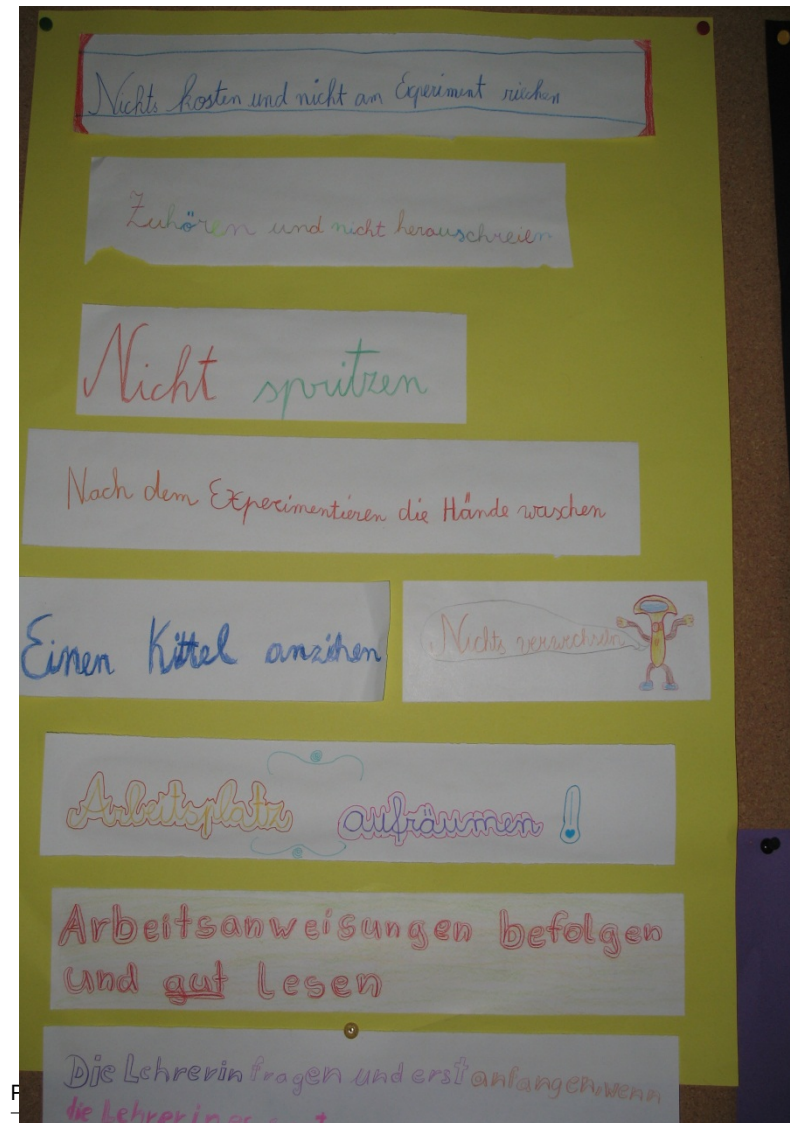 Nichts kosten und nicht am Experiment riechen
Zuhören und nicht herausschreien
Nicht spritzen
Nach dem Experimentieren die Hände waschen
Einen Kittel anziehen
Nichts verwechseln
Arbeitsplatz aufräumen
Arbeitsanweisungen befolgen
und gut lesen
Die Lehrerin fragen und erst anfangen, wenn
die Lehrerin